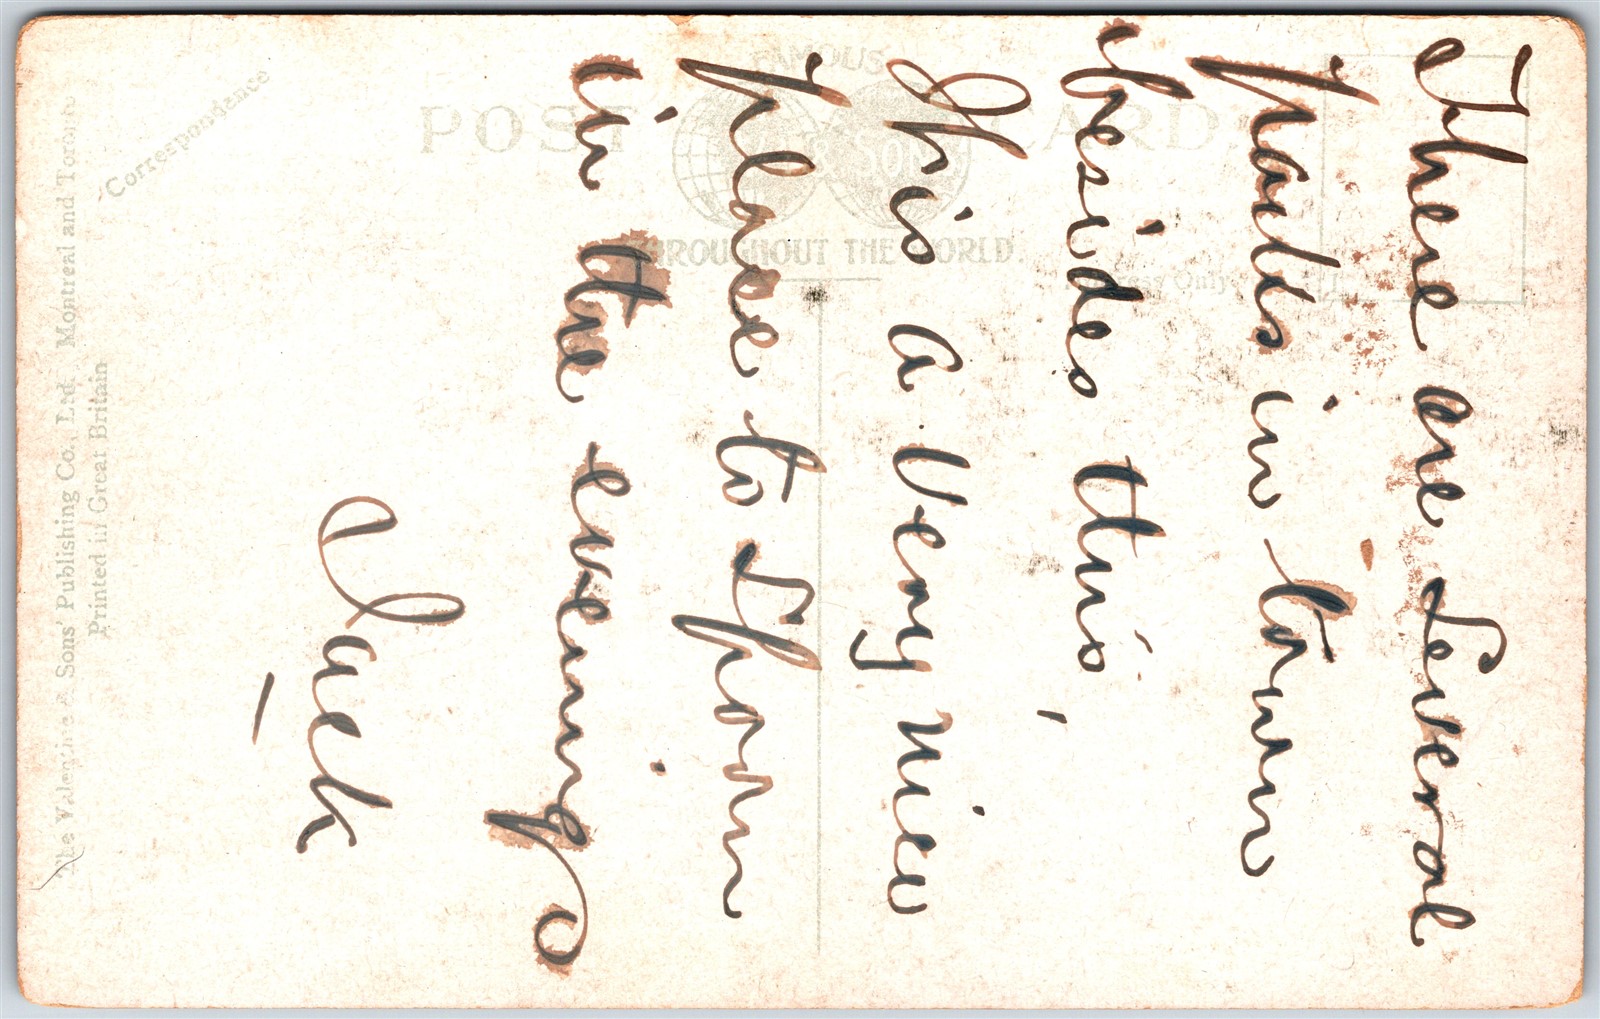 There are Several
parks in town
besides this,
This a Very nice
place to Spoon
in the evening
Jack
FAMOUS
POST CARD
SONS
THROUGHOUT THE WORLD.
Only
Correspondence
The Valentine & Sons' Publishing Co., Ltd. Montreal and Toronto
Printed in Great Britain